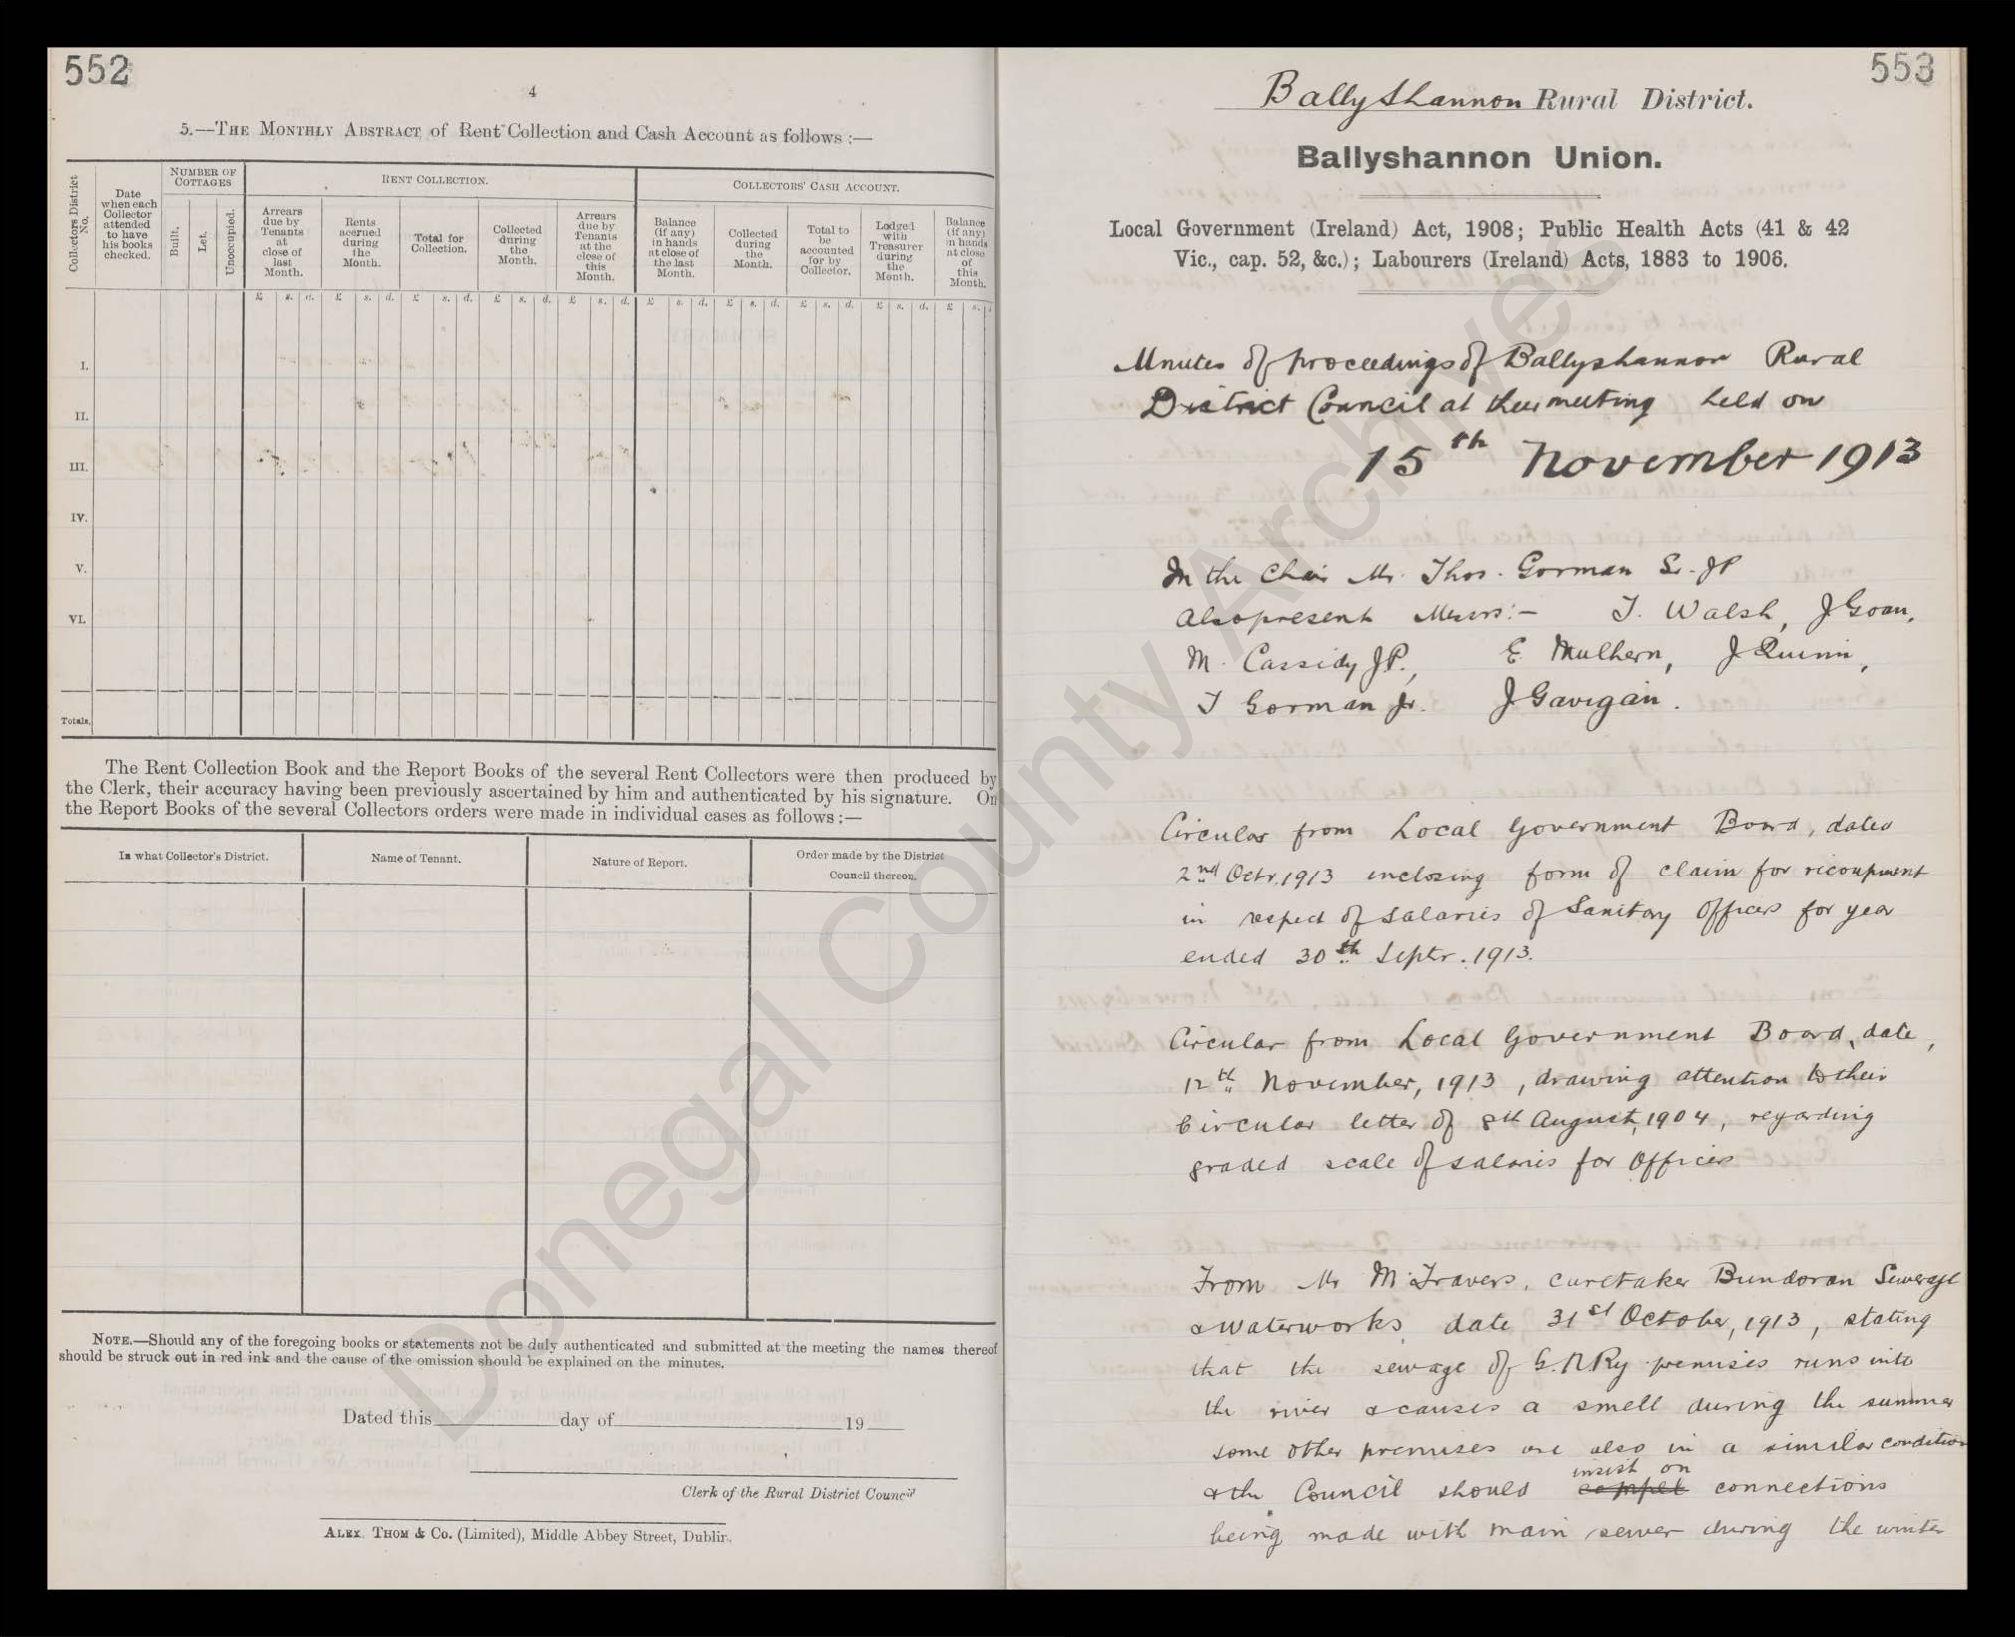 552
4
5.—THE MONTHLY ABSTRACT of Rent Collection and Cash Account as follows :—
Collectors District No.
Date when each Collector attended to have his books checked.
NUMBER OF COTTAGES
Built.
Let.
Unoccupied.
RENT COLLECTION.
Arrears due by Tenants at close of last Month.
Rents accrued during the Month.
Total for Collection.
Collected during the Month.
Arrears due by Tenants at the close of this Month.
COLLECTORS' CASH ACCOUNT.
Balance (if any) in hands at close of the last Month.
Collected during the Month.
Total to be accounted for by Collector.
Lodged with Treasurer during the Month.
Balance (if any) in hands at close of this Month.
£ s. d. £ s. d. £ s. d. £ s. d. £ s. d. £ s. d. £ s. d. £ s. d. £ s. d. £ s.
I.
II.
III.
IV.
V.
VI.
Totals,
The Rent Collection Book and the Report Books of the several Rent Collectors were then produced by
the Clerk, their accuracy having been previously ascertained by him and authenticated by his signature. On
the Report Books of the several Collectors orders were made in individual cases as follows :—
In what Collector's District.
Name of Tenant.
Nature of Report.
Order made by the District
Council thereon.
NOTE.—Should any of the foregoing books or statements not be duly authenticated and submitted at the meeting the names thereof
should be struck out in red ink and the cause of the omission should be explained on the minutes.
Dated this day of 19
Clerk of the Rural District Council
ALEX. THOM & Co. (Limited), Middle Abbey Street, Dublin.
553
Ballyshannon Rural District.
Ballyshannon Union.
Local Government (Ireland) Act, 1908; Public Health Acts (41 & 42
Vic., cap. 52, &c.); Labourers (Ireland) Acts, 1883 to 1906.
Minutes of proceedings of Ballyshannon Rural
District Council at their meeting held on
15th November 1913
In the Chair Mr. Thos. Gorman Sr. JP
Also present Messrs:— T. Walsh, J Goan,
M. Cassidy JP., E. Mulhern, J Quinn,
T Gorman Jr. J Gavigan.
Circular from Local Government Board, dated
2nd Octr. 1913 inclosing form of claim for recoupment
in respect of salaries of Sanitary Officers for year
ended 30th Septr. 1913.
Circular from Local Government Board, date,
12th November, 1913, drawing attention to their
Circular letter of 8th August, 1904, regarding
graded scale of salaries for Officers
From Mr M. Travers, caretaker Bundoran Sewerage
& Waterworks, date 31st October, 1913, stating
that the sewage of G.N Ry premises runs into
the river & causes a smell during the summer
some other premises are also in a similar condition
insist on
& the Council should compel connections
being made with main sewer during the winter
Donegal County Archives